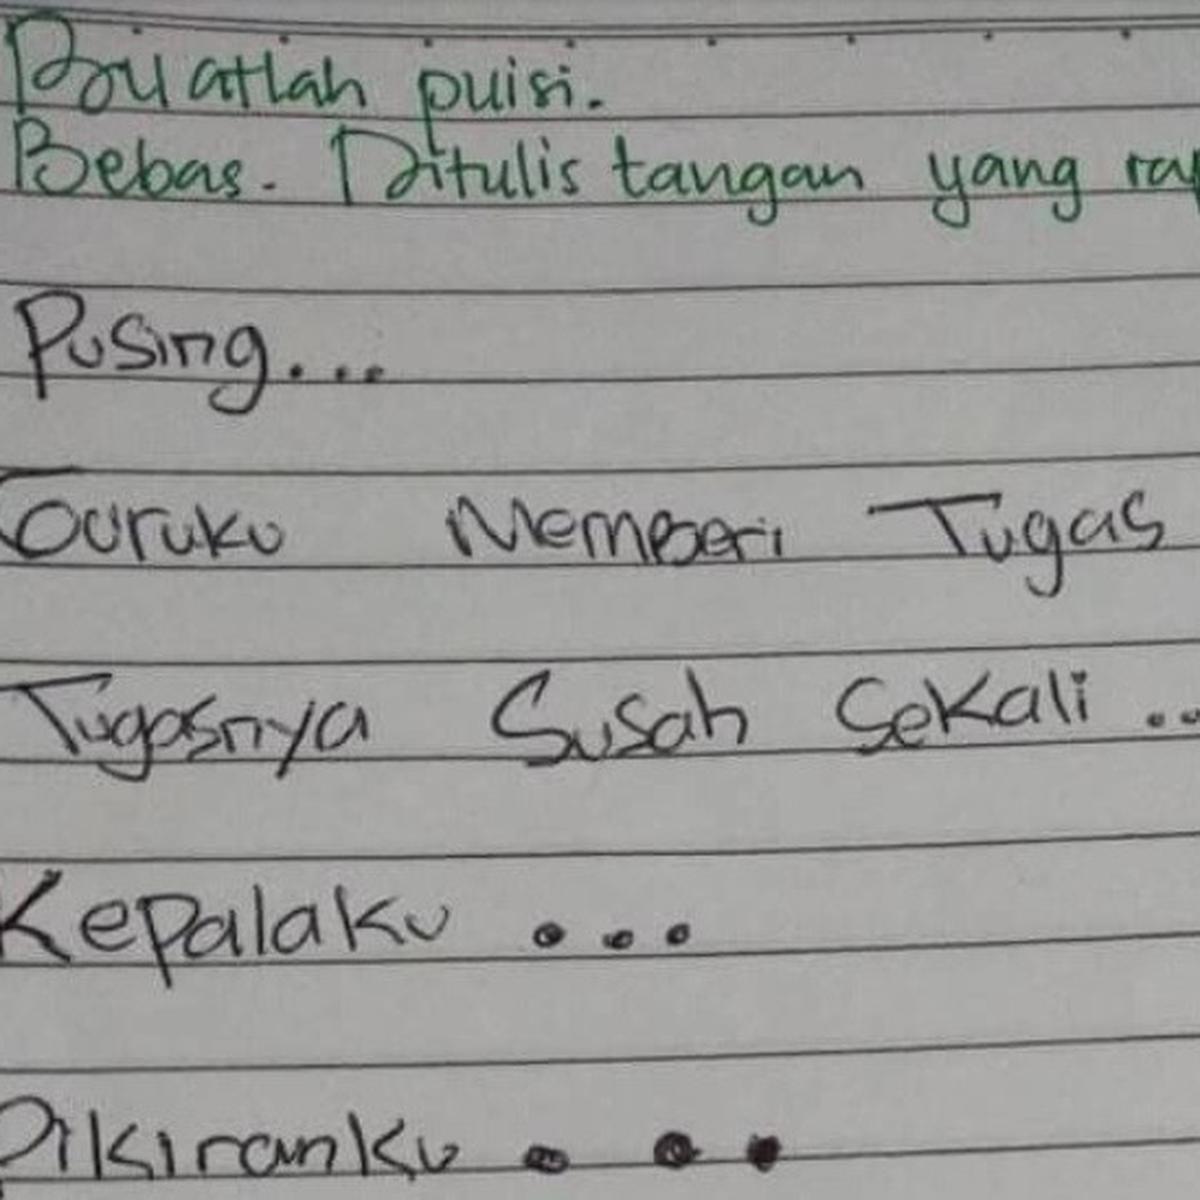 Buatlah puisi.
Bebas. Ditulis tangan yang rap
Pusing...
Guruku Memberi Tugas
Tugasnya Susah Sekali ..
Kepalaku ...
Pikiranku ...